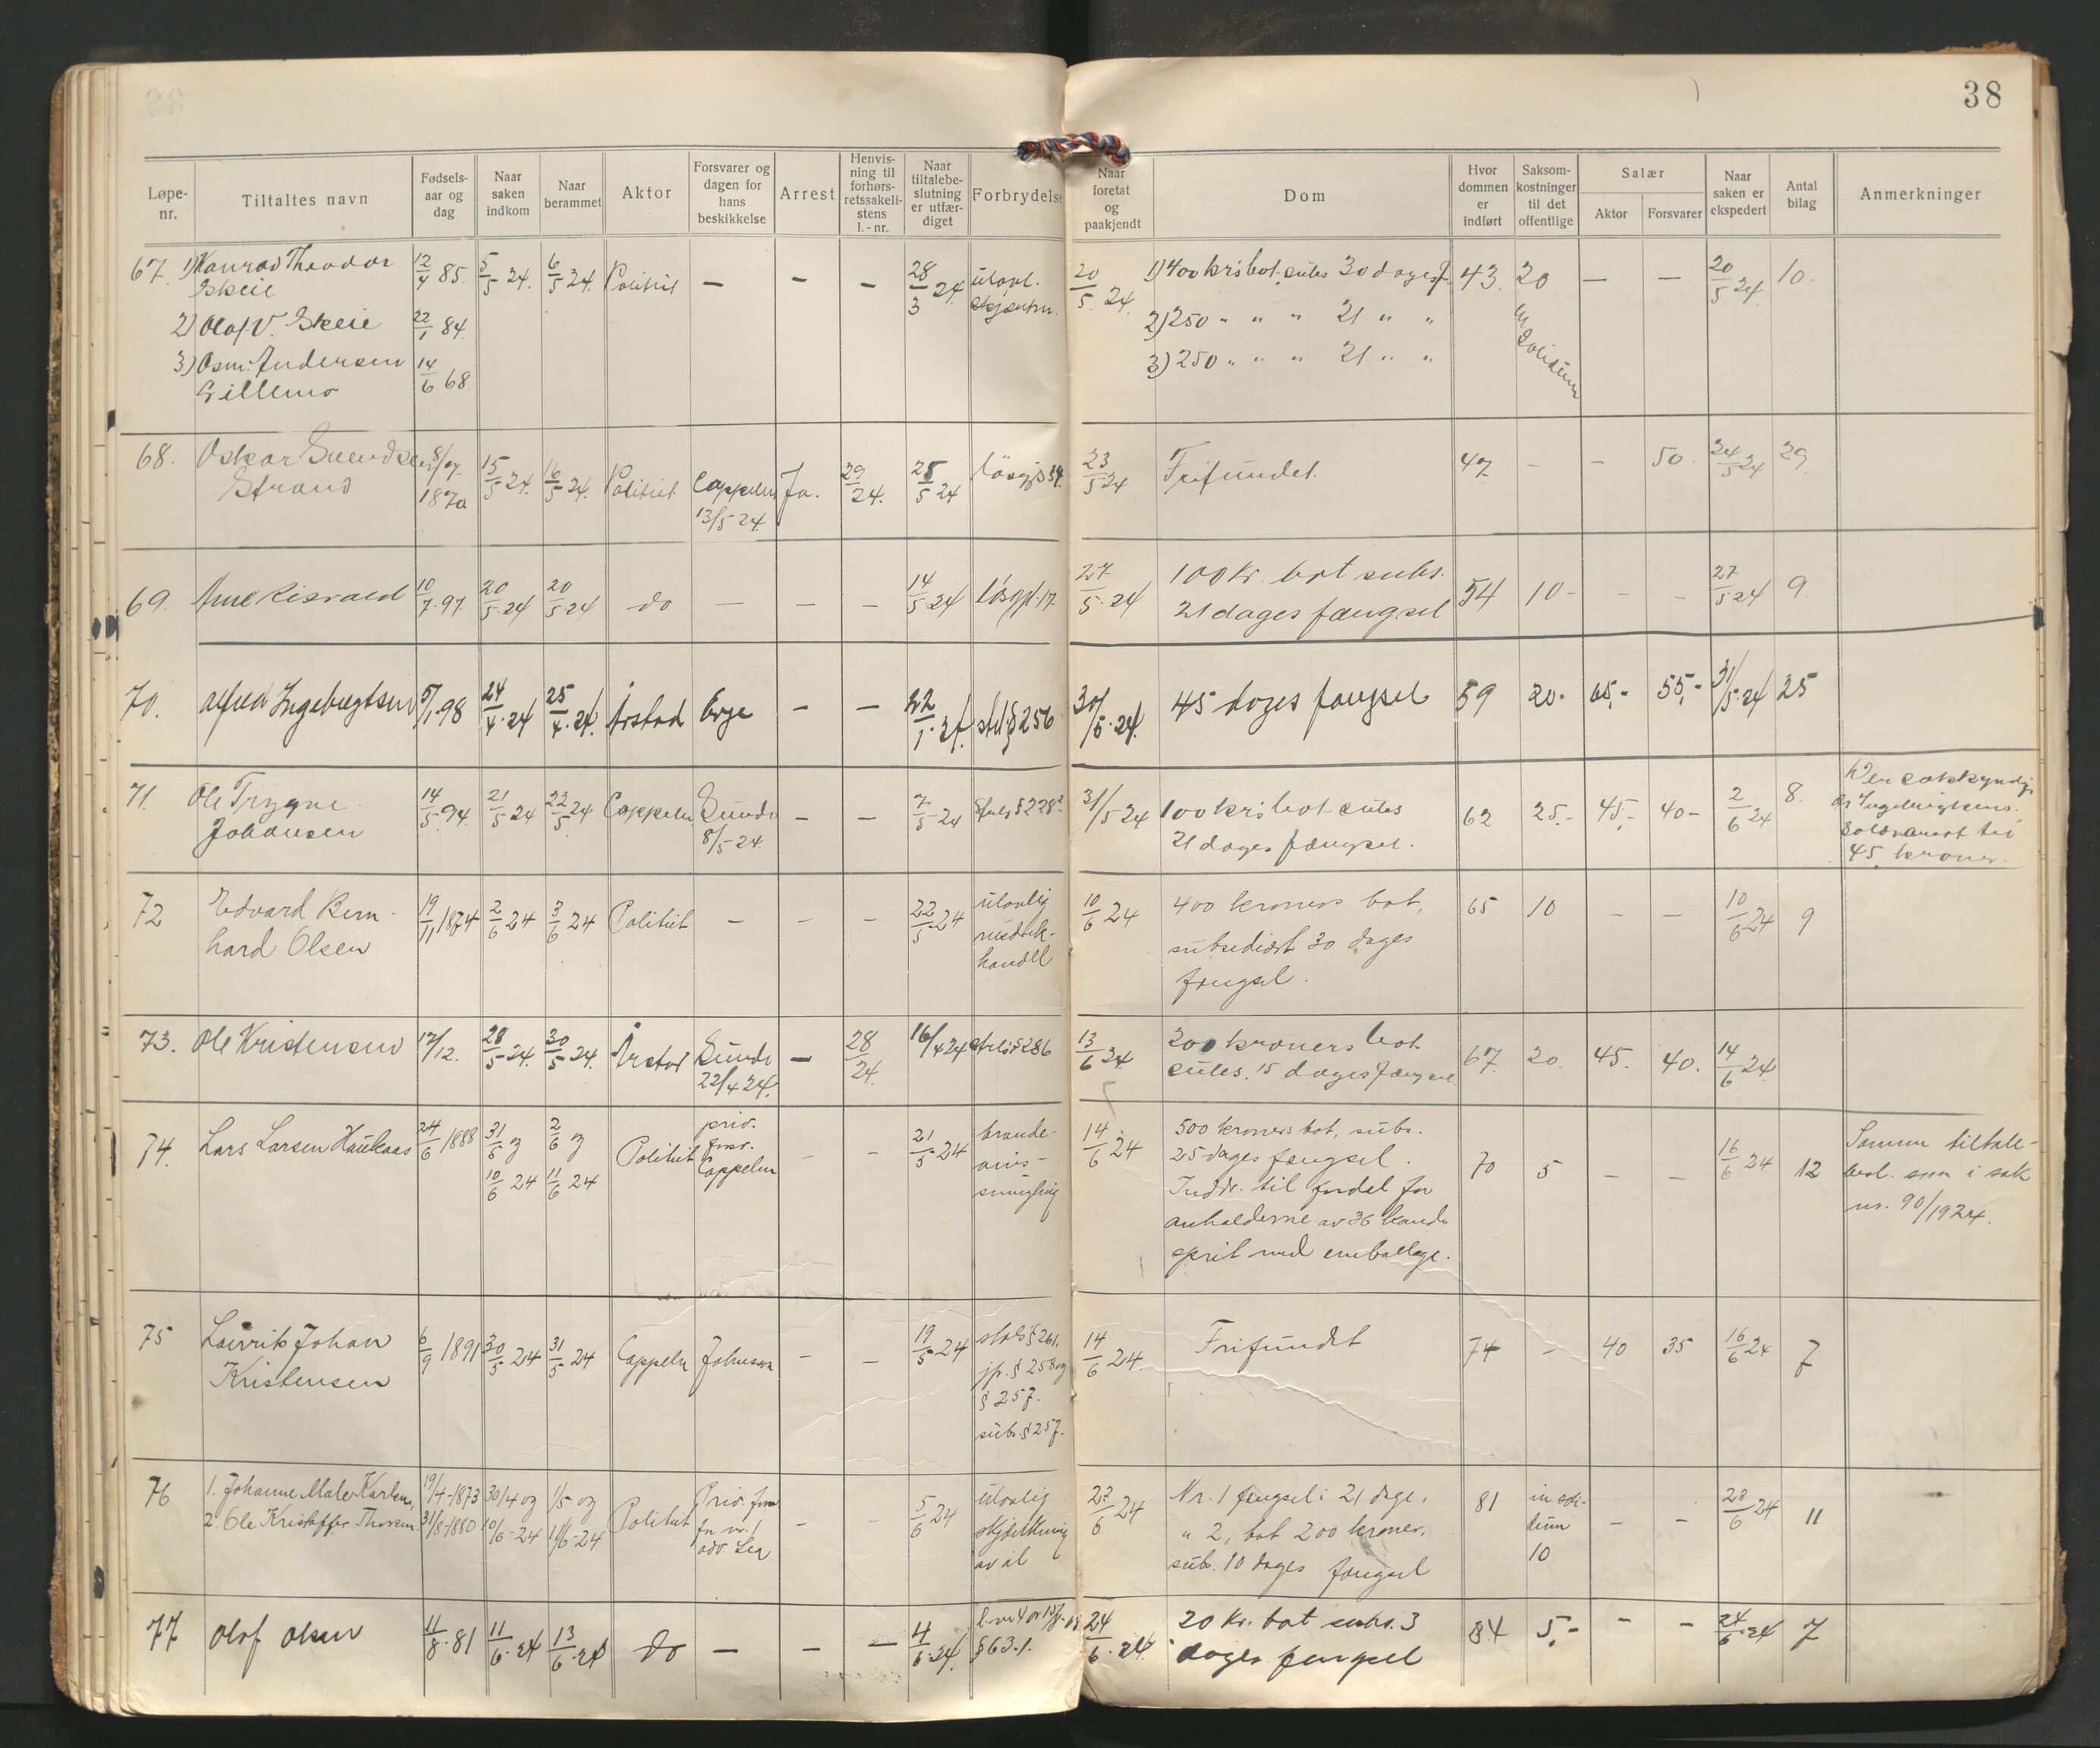 38
Løpe-nr.
Tiltaltes navn
Fødsels-aar og dag
Naar saken indkom
Naar berammet
Aktor
Forsvarer og dagen for hans beskikkelse
Arrest
Henvis-ning til forhørs-retssakeli-stens l.-nr.
Naar tiltalebe-slutning er utfær-diget
Forbrydelse
Naar foretat og paakjendt
Dom
Hvor dommen er indført
Saksom-kostninger til det offentlige
Salær
Aktor
Forsvarer
Naar saken er ekspedert
Antal bilag
Anmerkninger
67. 1) Konrad Theodor 12/4 85. 5/5 24. 6/5 24. Politiet — — — 28/3 24. ulovl. 20/5 24. 1) 400 kr's bot. subs 30 dages f. 43. 20 — — 20/5 24. 10.
Skeie skjænkn.
2) Olaf V. Skeie 22/1 84. 2) 250 " " " 21 " " in
3) Osm. Andersen 14/6 68. 3) 250 " " " 21 " " solidum
68. Oskar Svendsen 15/5 24. 16/5 24. Politiet Cappelen Ja. 29/24. 28/5 24 23/5 24 Frifundet. 47 - - 50. 24/5 24 29
Strand 1870 13/5 24.
69. 10/7 97. 20/5 24 20/5 24 do — — — 14/5 24 løsgjl. 17. 27/5 24 100 kr. bot subs. 54 10- - - 27/5 24 9.
21 dages fængsel
70. Alfred Ingebregtsen 5/1 98 24/4 24 25/4 24. Årstad Erge — — 22/1 24. strl § 256 30/5 24. 45 dages fængsel 59 20.- 65.- 55,- 31/5 24 25
71. Ole Trygve 14/5 94. 21/5 24 22/5 24 Cappelen Sunde — — 7/5 24 Strl § 228 31/5 24 100 kr's bot subs 62 25.- 45,- 40- 2/6 24 8.
Johansen 8/5 24. 21 dages fængsel.
Den sakkyndige
dr Ingebrigtsens
45 kroner.
72 Edvard Bern- 19/11 1874 2/6 24 3/6 24 Politiet - - - 22/5 24 ulovlig 10/6 24 400 kroners bot, 65 10 - - 10/6 24 9
hard Olsen rusdrik- subsidiært 30 dages
handel fængsel.
73. Ole Kristensen 17/12. 28/5 24. 30/5 24. Årstad Sunde — 28/24. 16/4 24 strl § 286 13/6 24. 200 kroners bot 67. 20. 45. 40. 14/6 24.
22/4 24. subs. 15 dages fængsel
74. Lars Larsen Haukaas 24/6 1888 31/5 og 2/6 og Politiet priv. - - 21/5 24 brænde- 14/6 24 500 kroners bot, subs. 70 5 - - 16/6 24 12 Samme tiltale-
10/6 24 11/6 24 forsv. vins- 25 dages fængsel. besl. som i sak
Cappelen smugling Inddr. til fordel for nr. 90/1924.
anholderne av 36 kande
sprit med emballage.
75 Lauritz Johan 6/9 1891 30/5 24 31/5 24 Cappelen Johnsen - - 19/5 24 strl § 261, 14/6 24. Frifundet 74 - 40 35 16/6 24 7
Kristensen jfr. § 258 og
§ 257.
subs. § 257.
76 1. Johanne Marie Karlsen 19/4-1873 30/4 og 1/5 og Politiet Priv. forsv. - - 5/6 24 ulovlig 23/6 24 Nr. 1 fængsel i 21 dage. 81 in soli- - - 23/6 24 11
2. Ole Kristoffer Thorsen 31/8-1880 10/6-24 11/6-24 for nr. 1 skjænkning " 2, bot 200 kroner, dum
adv. Lea av øl subs. 10 dages fængsel 10
77 Olof Olsen 11/8 81 11/6 24 13/6 24 do — — — 4/6 24. § 63.1. 24/6 24. 20 kr. bot subs. 3 84 5,- - - 24/6 24 7
dages fængsel